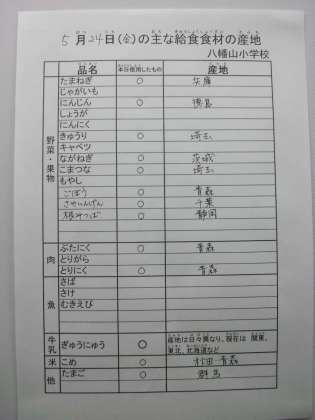 5月24日(金)の主な給食食材の産地
八幡山小学校
品名 本日使用したもの 産地
野菜・果物
たまねぎ ○ 兵庫
じゃがいも
にんじん ○ 徳島
しょうが
にんにく
きゅうり ○ 埼玉
キャベツ
ながねぎ ○ 茨城
こまつな ○ 埼玉
もやし
ごぼう ○ 青森
さやいんげん ○ 千葉
根みつば ○ 静岡
肉
ぶたにく ○ 青森
とりがら
とりにく ○ 青森
魚
さば
さけ
むきえび
牛乳 ぎゅうにゅう ○ 産地は日々異なり、現在は 関東、
東北、北海道など
米 こめ ○ 秋田 青森
他 たまご ○ 群馬